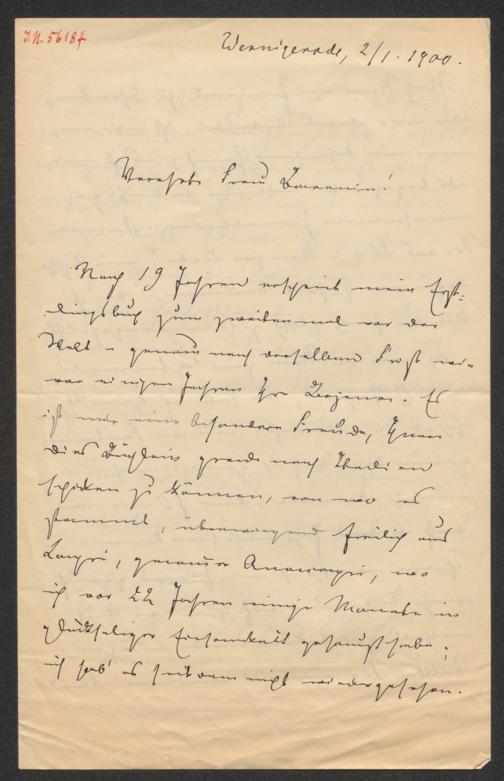 J.N. 56187
Wernigerode, 2/1. 1900.
Verehrte Frau Baronin!
Nach 19 Jahren erscheint mein Erst-
lingsbuch zum zweitenmal vor der
Welt – genau nach derselben Frist wie
vor einigen Jahren Ihre Bozena. Es
ist mir eine besondere Freude, Ihnen
dies Büchlein gerade nach Italien
schicken zu können, von wo es
stammt, überwiegend freilich aus
Capri, genauer Anacapri, wo
ich vor 22 Jahren einige Monate in
glückseliger Einsamkeit gehaust habe;
ich hab' es seitdem nicht wiedergesehen.